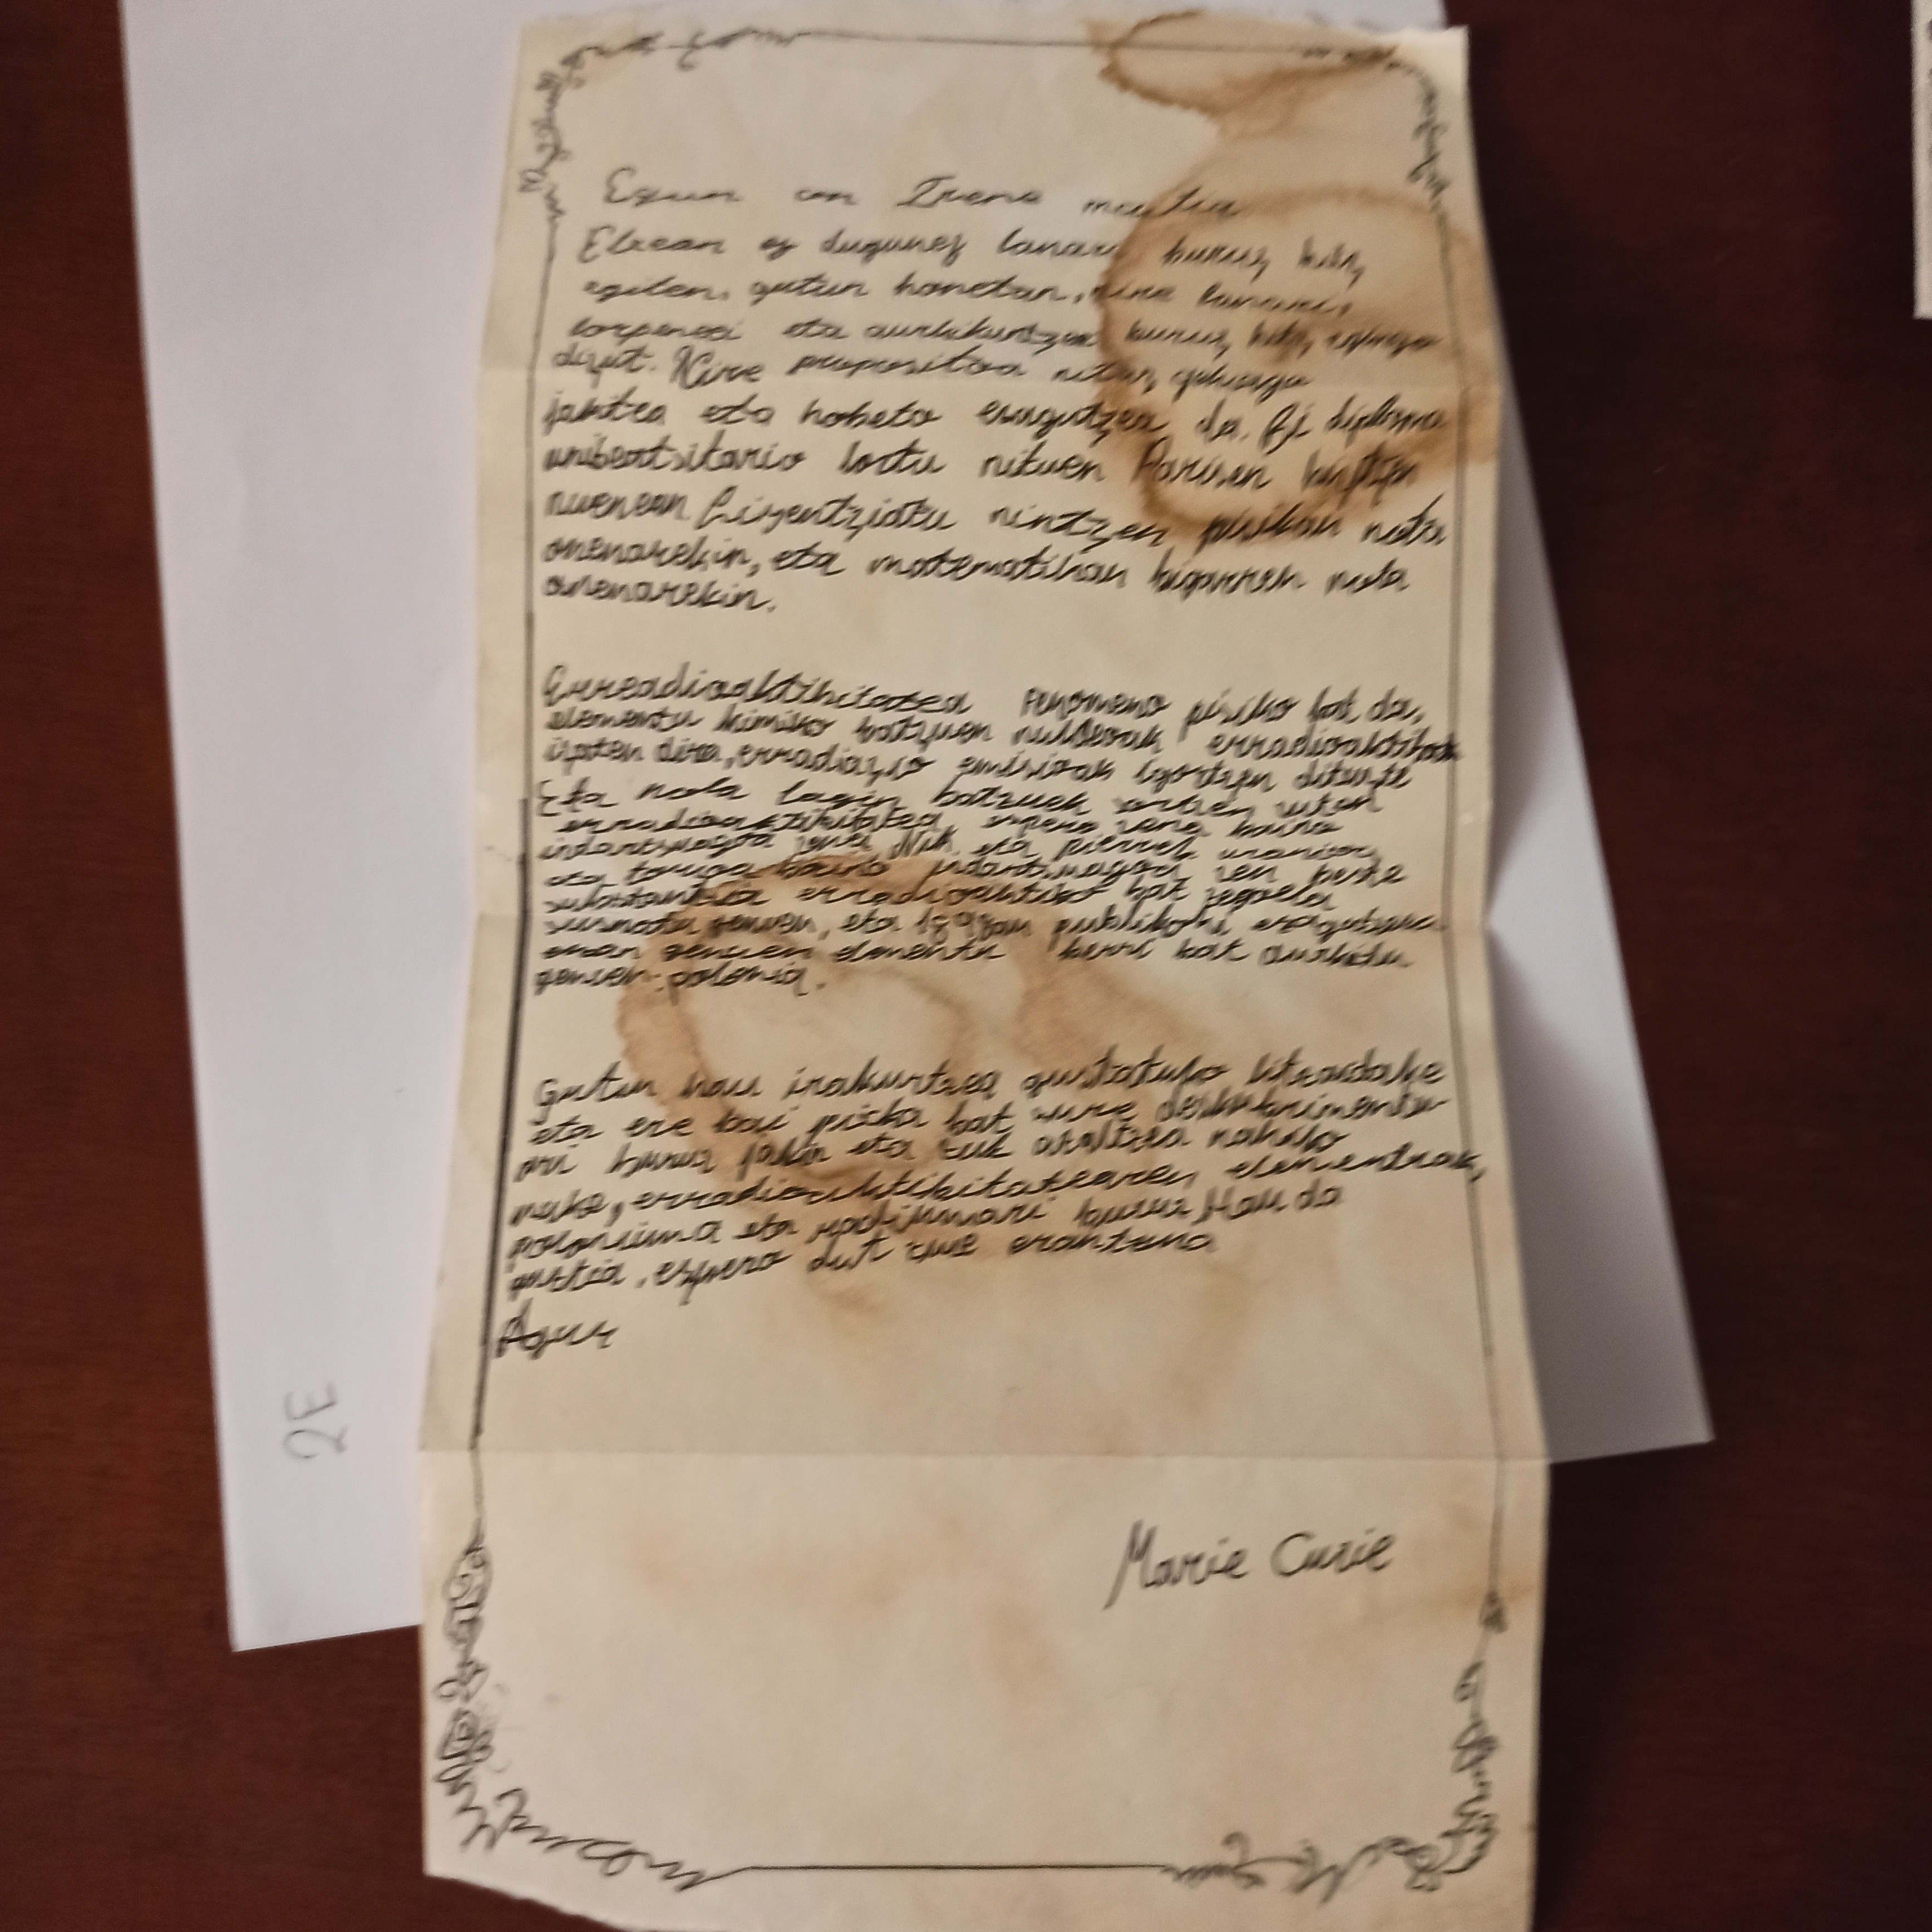 Egun on Irene maitia
Etxean ez dugunez lanari buruz hitz
egiten, gutun honetan, nire lanari,
lorpenei eta aurkikuntzei buruz hitz egingo
dizut. Nire propositoa nitaz gehiago
jakitea eta hobeto ezagutzea da. Bi diploma
unibertsitario lortu nituen Parisen bizitzen
nuenean Lizentziatu nintzen fisikan nota
onenarekin, eta matematikan bigarren nota
onenarekin.
Erreadioaktibitatea fenomeno fisiko bat da,
elementu kimiko batzuen nukleoak erradioaktiboak
izaten dira, erradiazio emisioak igortzen dituzte
Eta nola lagin batzuek sortzen zuten
erradioaktibitatea espero zena baino
indartsuagoa zena Nik eta Pierrek uranioa
eta torioa baino indartsuagoa zen beste
substantzia erradioaktibo bat zegoela
susmatu genuen, eta 1898an publikoki ezagutzera
eman genuen elementu berri bat aurkitu
genuen: polonia.
Gutun hau irakurtzea gustatuko litzaidake
eta ere bai piska bat zure deskubrimentu
ari buruz jakin eta zuk azaltzea nahiko
nuke, erradioaktibitatearen elementuak,
poloniuma eta radiumari buruz Hau da
guztia, espero dut zure erantzuna
Agur
Marie Curie
2E